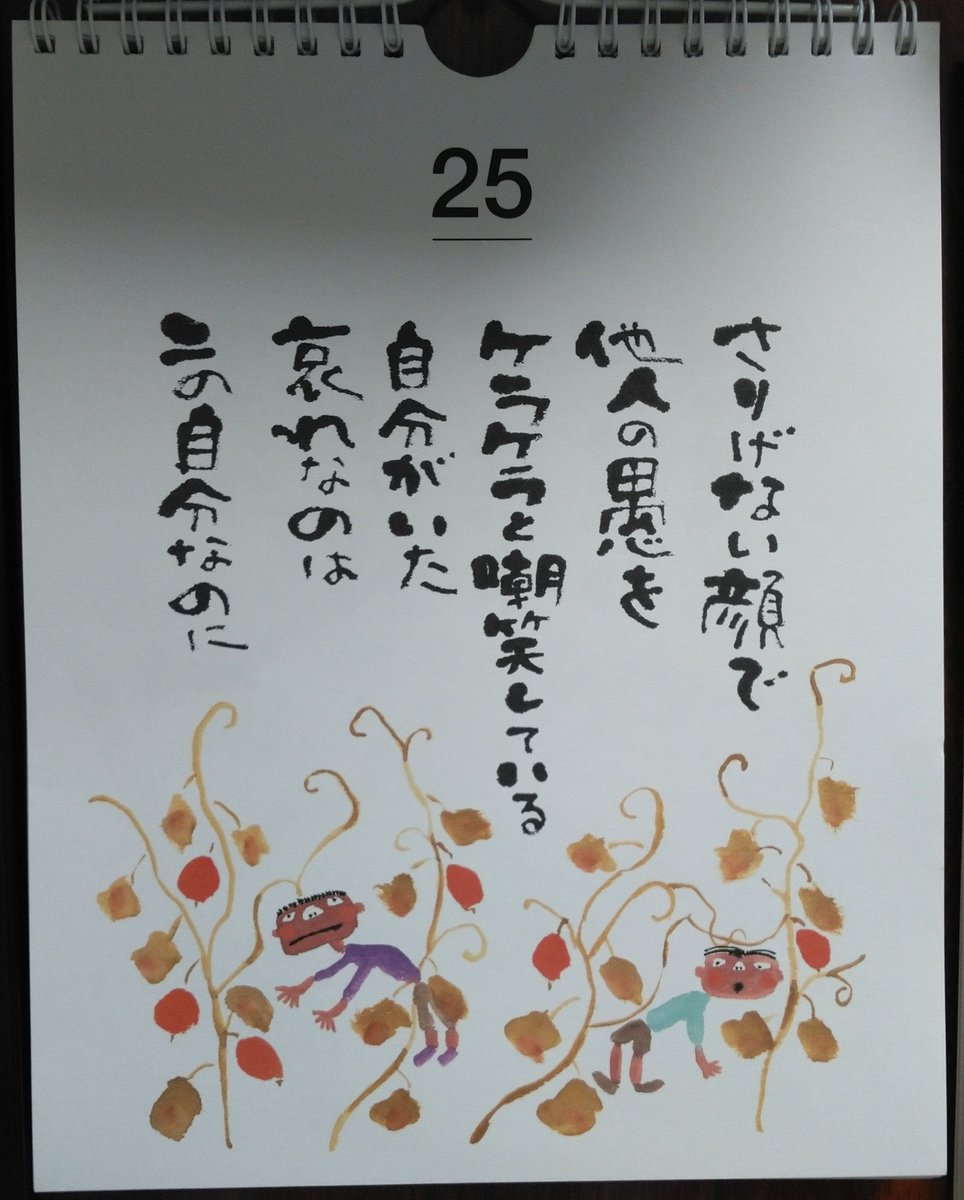 25
さりげない顔で
他人の愚を
ケラケラと嘲笑している
自分がいた
哀れなのは
この自分なのに